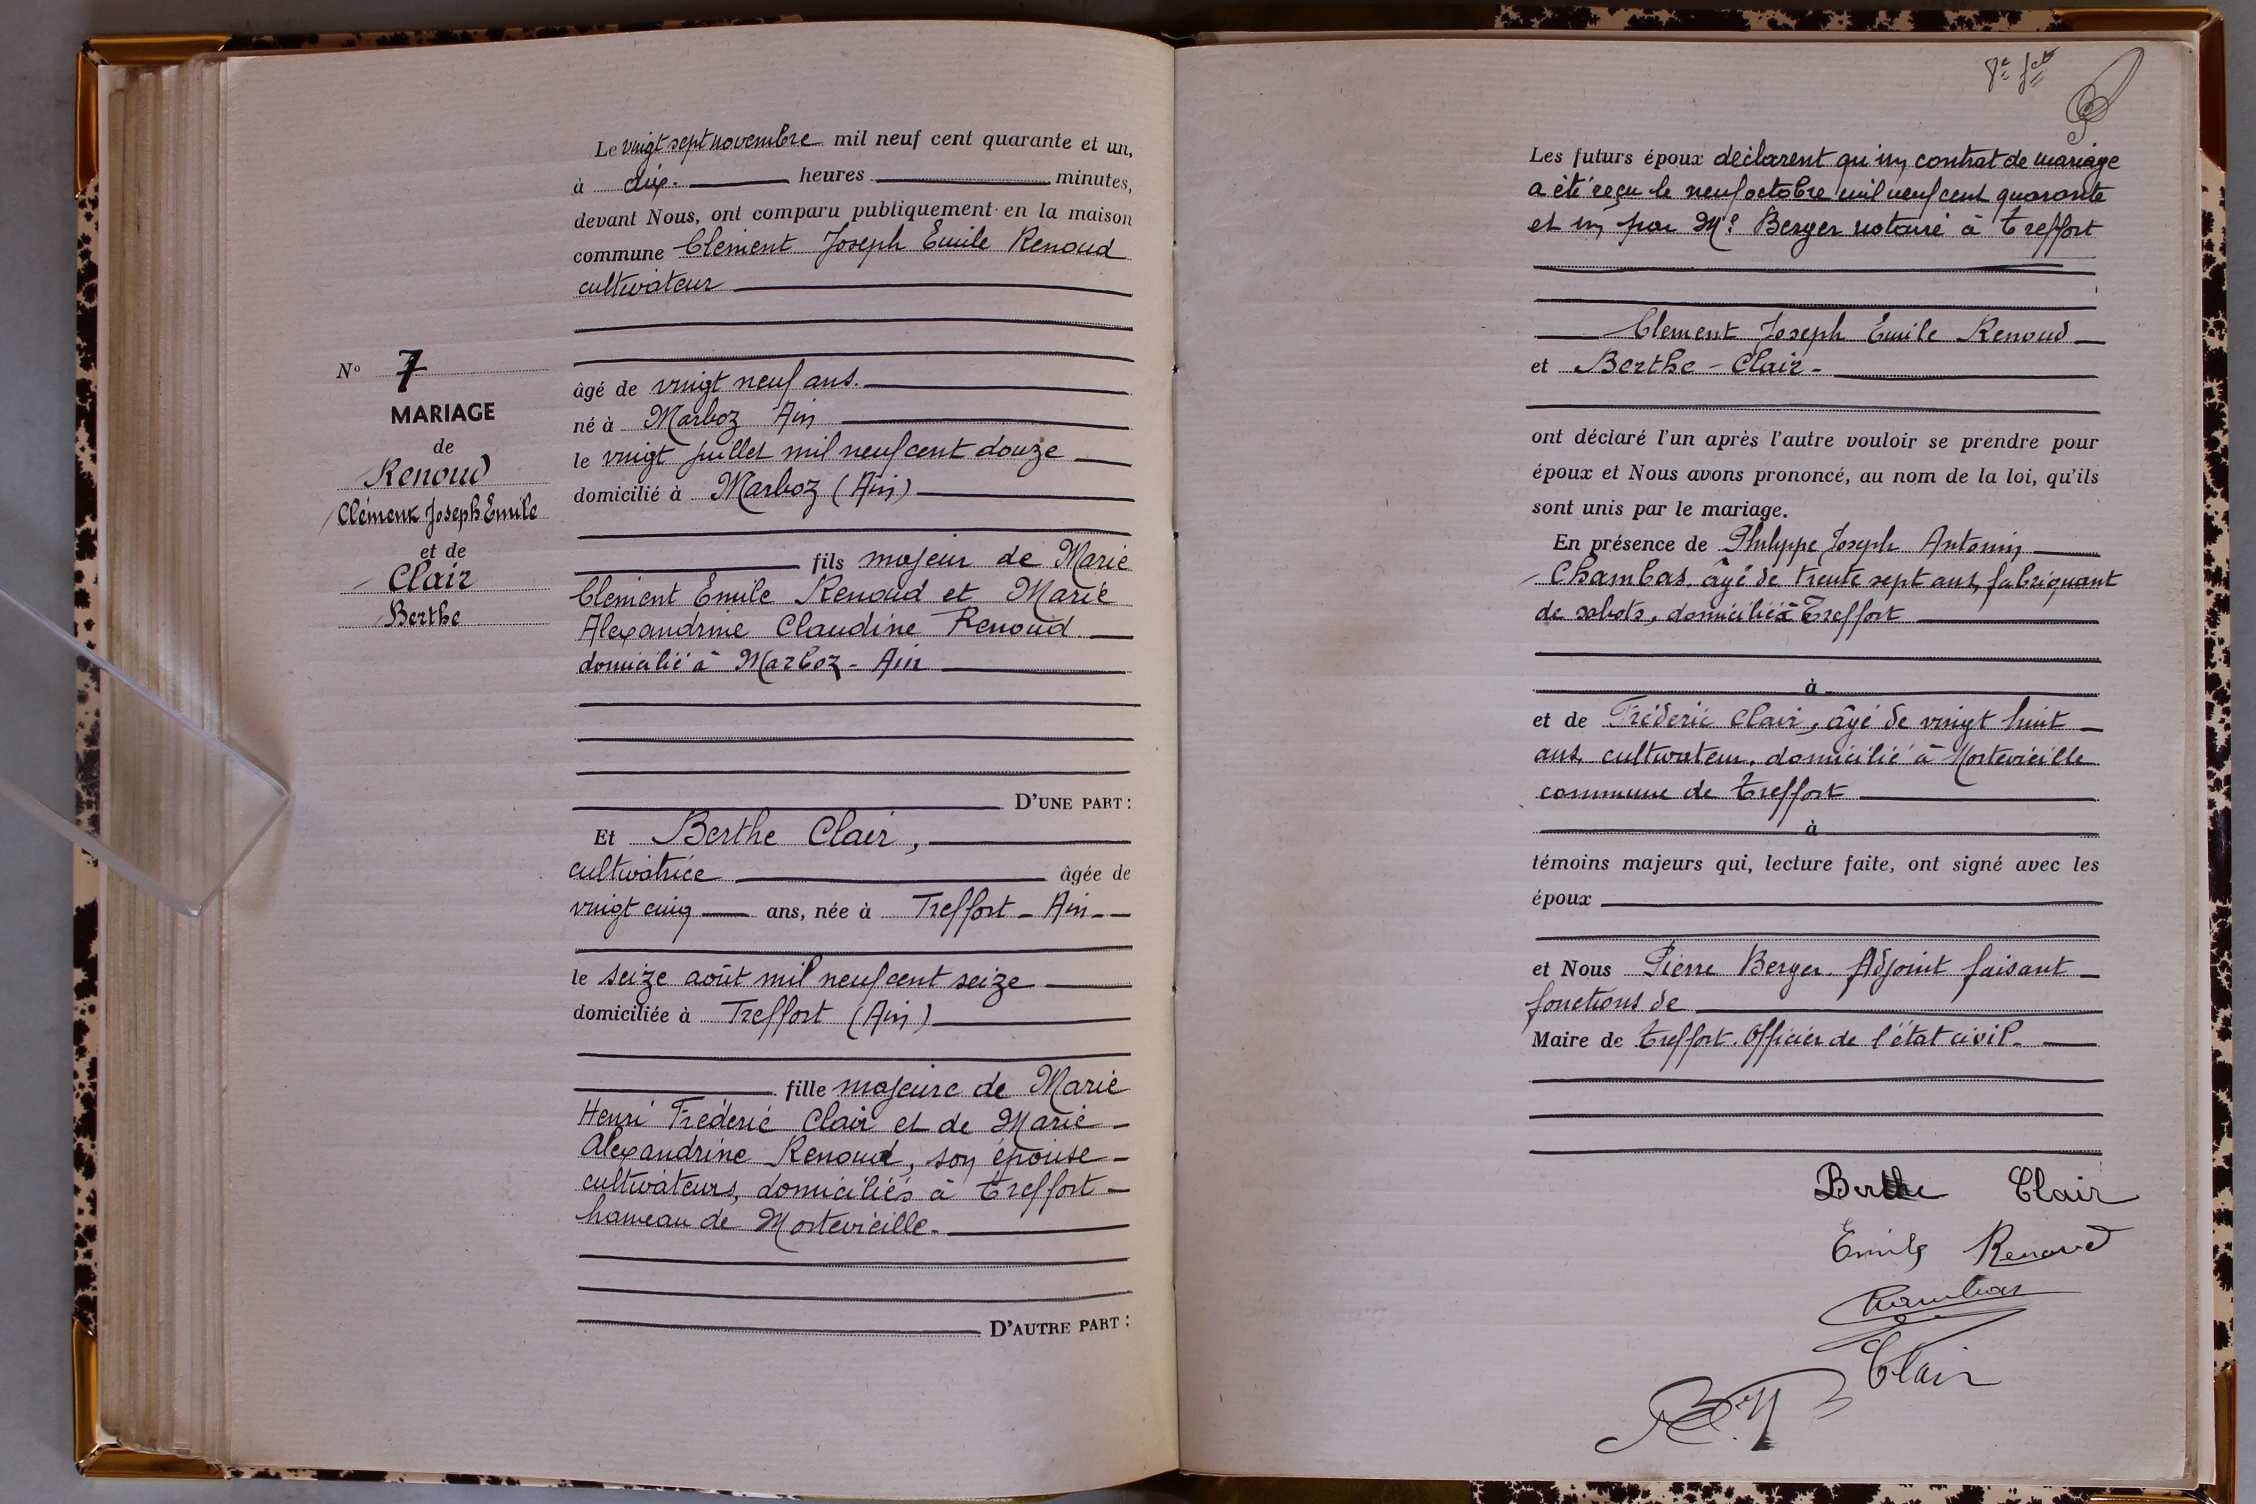 Le vingt sept novembre mil neuf cent quarante et un,
à dix. heures minutes,
devant Nous, ont comparu publiquement en la maison
commune Clément Joseph Emile Renoud
cultivateur
No 7
MARIAGE
de
Renoud
Clément Joseph Emile
et de
Clair
Berthe
âgé de vingt neuf ans.
né à Marboz Ain
le vingt juillet mil neuf cent douze
domicilié à Marboz (Ain)
fils majeur de Marie
Clément Emile Renoud et Marie
Alexandrine Claudine Renoud
domicilié à Marboz - Ain
D'UNE PART :
Et Berthe Clair,
cultivatrice âgée de
vingt cinq ans, née à Treffort - Ain
le seize août mil neuf cent seize
domiciliée à Treffort (Ain)
fille majeure de Marie
Henri Frédéric Clair et de Marie
Alexandrine Renoud, son épouse
cultivateurs, domiciliés à Treffort
hameau de Montevieille.
D'AUTRE PART :
Les futurs époux déclarent qu'un contrat de mariage
a été reçu le neuf octobre mil neuf cent quarante
et un par Me Berger notaire à Treffort
Clément Joseph Emile Renoud
et Berthe - Clair -
ont déclaré l'un après l'autre vouloir se prendre pour
époux et Nous avons prononcé, au nom de la loi, qu'ils
sont unis par le mariage.
En présence de Philippe Joseph Antonin
Chambas, âgé de trente sept ans, fabriquant
de sabots, domicilié à Treffort
à
et de Frédéric Clair, âgé de vingt huit
ans, cultivateur, domicilié à Montevieille
commune de Treffort
à
témoins majeurs qui, lecture faite, ont signé avec les
époux
et Nous Pierre Berger Adjoint faisant
fonctions de
Maire de Treffort. Officier de l'état civil.
Berthe Clair
Emile Renoud
Chambas
Clair